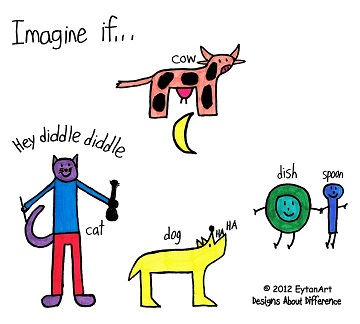 Imagine if...
COW
Hey diddle diddle
cat
dog
HA
HA
dish
spoon
© 2012 EytanArt
Designs About Difference